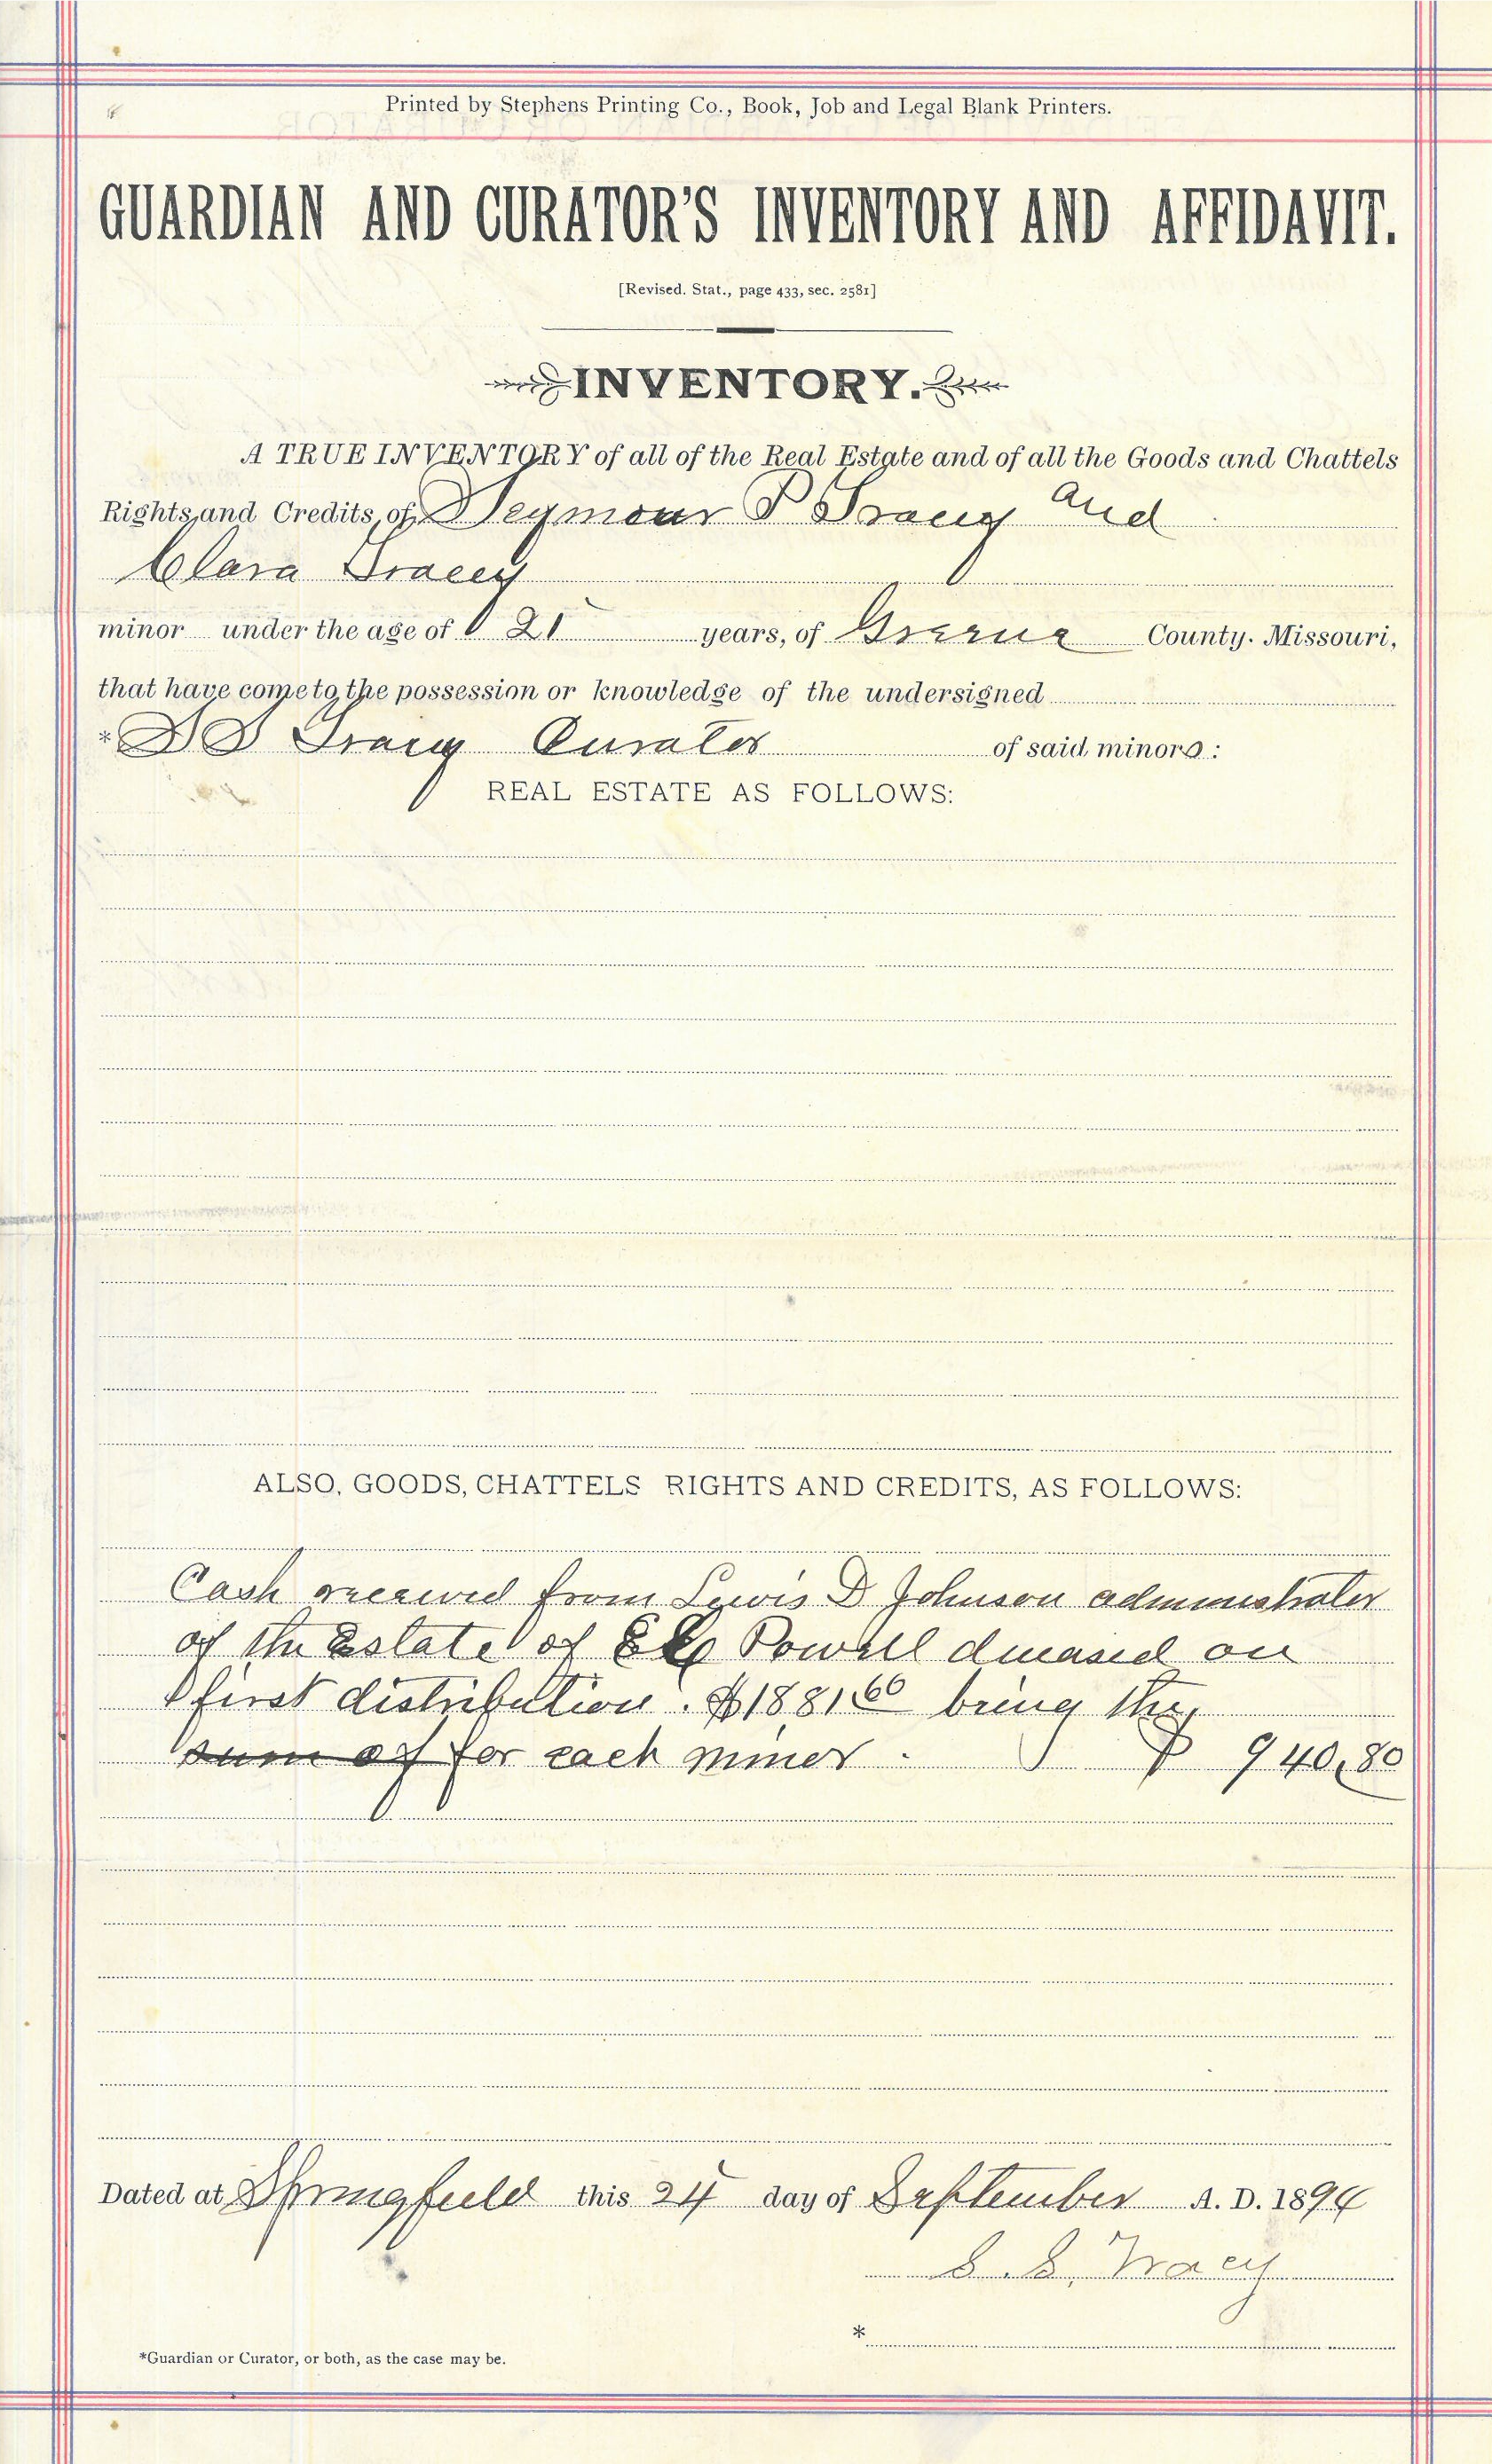 Printed by Stephens Printing Co., Book, Job and Legal Blank Printers.
GUARDIAN AND CURATOR'S INVENTORY AND AFFIDAVIT.
[Revised. Stat., page 433, sec. 2581]
INVENTORY.
A TRUE INVENTORY of all of the Real Estate and of all the Goods and Chattels
Rights and Credits, of Seymour P Tracy and
Clara Tracey
minor under the age of 21 years, of Greene County. Missouri,
that have come to the possession or knowledge of the undersigned
* S S Tracy Curator of said minors:
REAL ESTATE AS FOLLOWS:
ALSO, GOODS, CHATTELS RIGHTS AND CREDITS, AS FOLLOWS:
Cash received from Lewis D Johnson administrator
of the Estate of Powell deceased on
first distribution. $1881.60 being the
sum of for each minor. $ 940,80
Dated at Springfield this 24 day of September A. D. 189
S. S. Tracy
*
*Guardian or Curator, or both, as the case may be.